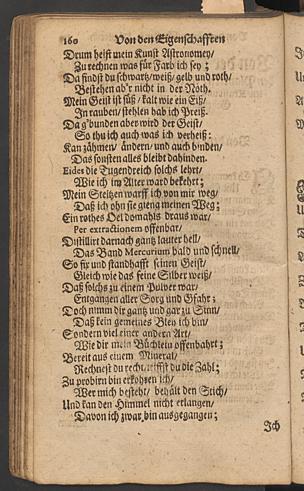 160 Von den Eigenschafften
Drum heist mein Kunst Astronomey/
Zu rechnen was für Farb ich sey;
Da findst du schwartz/ weiß/ gelb und roth/
Bestehen ab'r nicht in der Noth.
Mein Geist ist süß/ kalt wie ein Eiß/
In rauben/ stehlen hab ich Preiß.
Da g'bunden aber wird der Geist/
So thu ich auch was ich verheiß:
Kan zähmen/ ändern/ und auch binden/
Das sonsten alles bleibt dahinden.
Eides die Tugendreich solchs lehrt/
Wie ich im Alter ward bekehrt;
Mein Steltzen warff ich von mir weg/
Daß ich ohn sie gieng meinen Weg;
Ein rothes Oel domahls draus war/
Per extractionem offenbar/
Distillirt darnach gantz lauter hell/
Das Band Mercurium bald und schnell/
So fix und standhafft seinen Geist/
Gleich wie das feine Silber weiß/
Daß solchs zu einem Pulver war
Entgangen aller Sorg und Gfahr;
Doch nimm dir gantz und gar zu Sinn/
Daß kein gemeines Bley ich bin/
Sondern viel einer andern Art/
Wie dir mein Büchlein offenbahrt;
Bereit aus einem Mineral/
Rechnest du recht/ triffst du die Zahl;
Zu probirn bin erkohren ich/
Wer mich besteht/ behält den Stich/
Und kan den Himmel nicht erlangen/
Davon ich zwar bin ausgegangen;
Ich